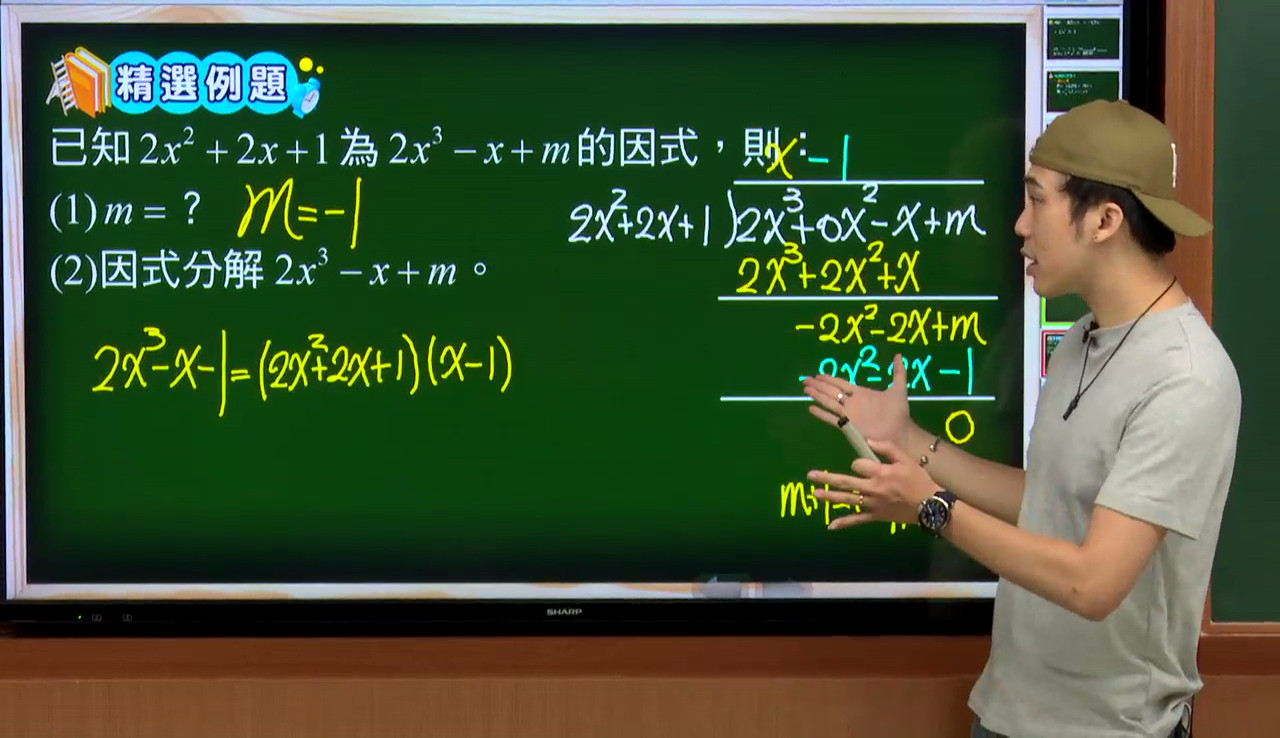 精選例題
已知 2x² + 2x + 1 為 2x³ − x + m 的因式，則：
(1) m = ？ m = -1
(2)因式分解 2x³ − x + m 。
2x³-x-1=(2x²+2x+1)(x-1)
x -1
2x²+2x+1 )2x³+0x²-x+m
2x³+2x²+x
-2x²-2x+m
-2x²-2x-1
0
SHARP